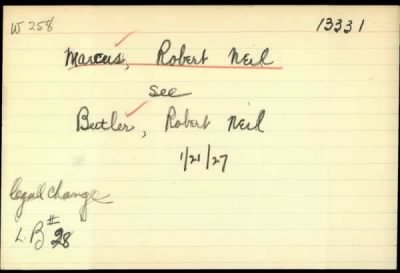 W 258
13331
Marcus, Robert Neil
see
Butler, Robert Neil
1/21/27
legal change
L.B # 28